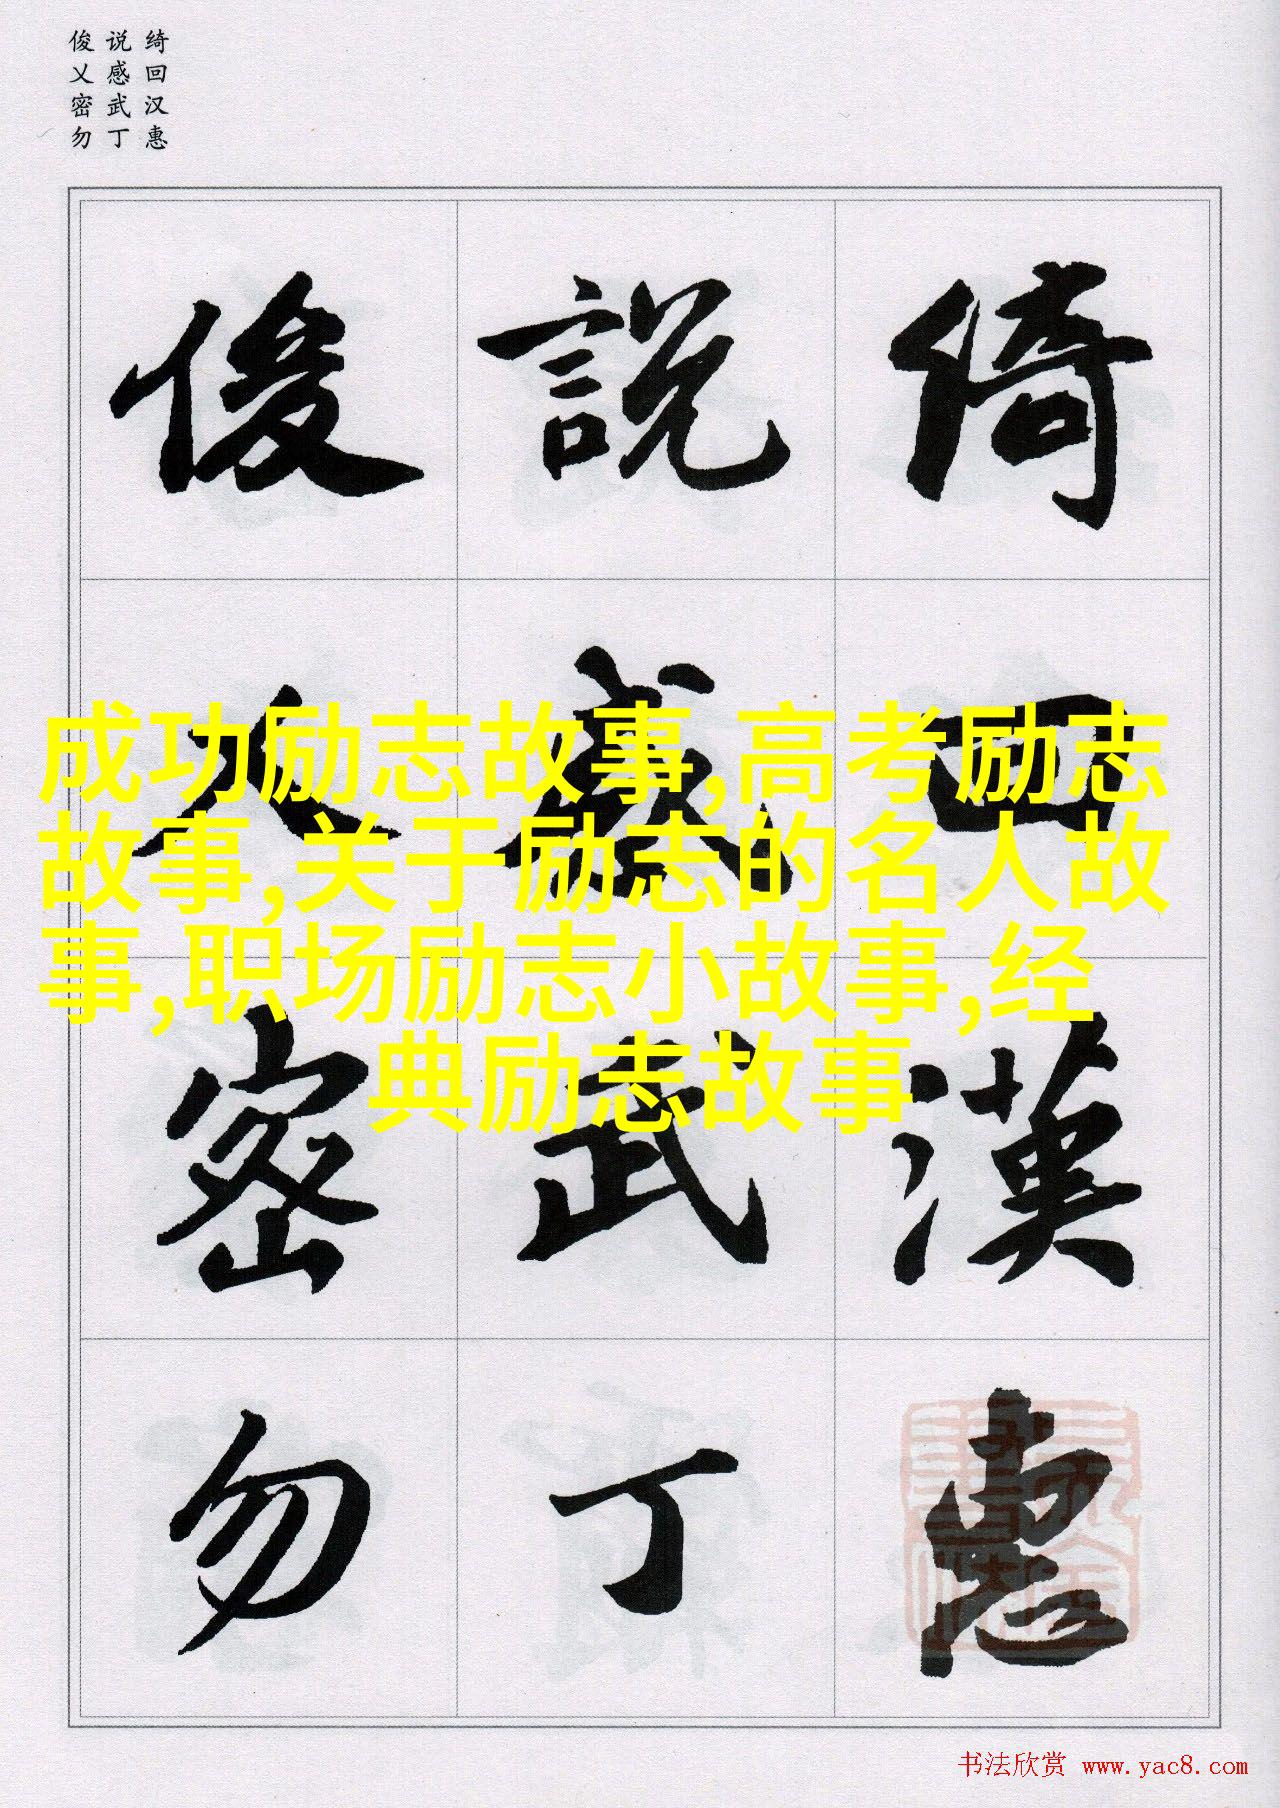 绮回汉惠
说感武丁
俊乂密勿
綺回漢惠
説感武丁
俊乂密勿
成功励志故事,高考励志
故事,关于励志的名人故
事,职场励志小故事,经
典励志故事
书法欣赏 www.yac8.com